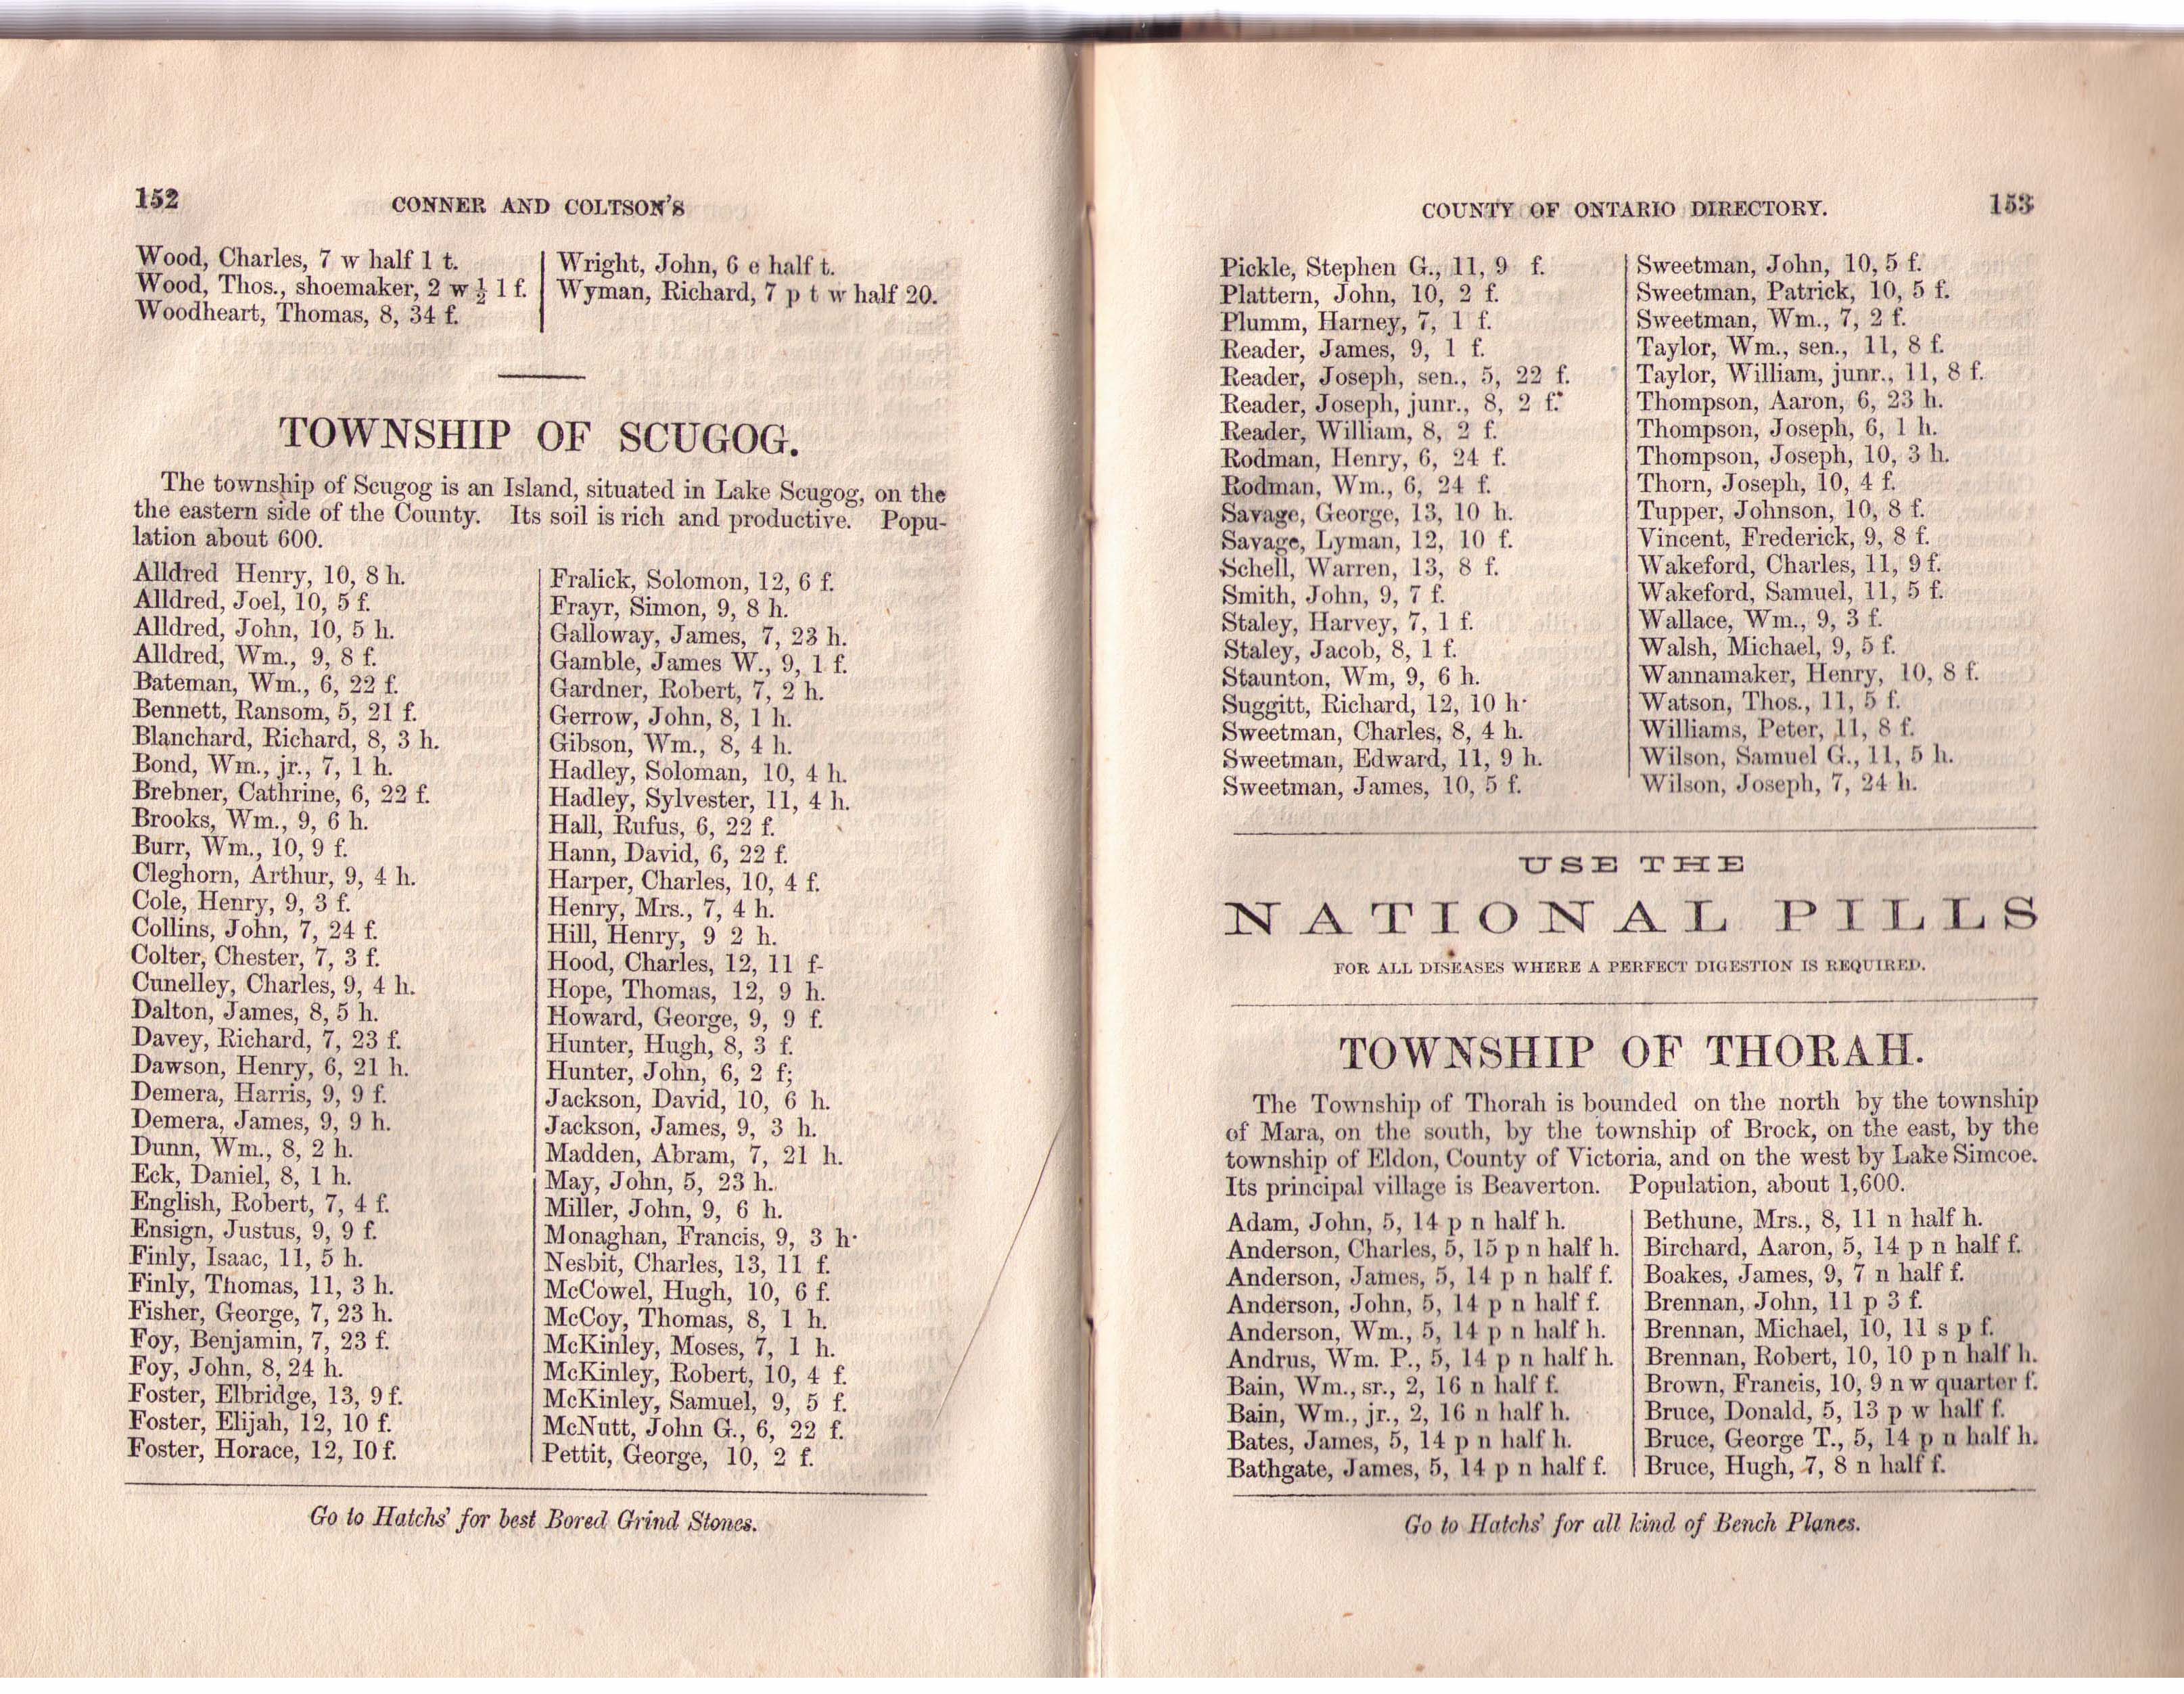 152
CONNER AND COLTSON'S
Wood, Charles, 7 w half 1 t.
Wood, Thos., shoemaker, 2 w ½ 1 f.
Woodheart, Thomas, 8, 34 f.
Wright, John, 6 e half t.
Wyman, Richard, 7 p t w half 20.
TOWNSHIP OF SCUGOG.
The township of Scugog is an Island, situated in Lake Scugog, on the
the eastern side of the County. Its soil is rich and productive. Popu-
lation about 600.
Alldred Henry, 10, 8 h.
Alldred, Joel, 10, 5 f.
Alldred, John, 10, 5 h.
Alldred, Wm., 9, 8 f.
Bateman, Wm., 6, 22 f.
Bennett, Ransom, 5, 21 f.
Blanchard, Richard, 8, 3 h.
Bond, Wm., jr., 7, 1 h.
Brebner, Cathrine, 6, 22 f.
Brooks, Wm., 9, 6 h.
Burr, Wm., 10, 9 f.
Cleghorn, Arthur, 9, 4 h.
Cole, Henry, 9, 3 f.
Collins, John, 7, 24 f.
Colter, Chester, 7, 3 f.
Cunelley, Charles, 9, 4 h.
Dalton, James, 8, 5 h.
Davey, Richard, 7, 23 f.
Dawson, Henry, 6, 21 h.
Demera, Harris, 9, 9 f.
Demera, James, 9, 9 h.
Dunn, Wm., 8, 2 h.
Eck, Daniel, 8, 1 h.
English, Robert, 7, 4 f.
Ensign, Justus, 9, 9 f.
Finly, Isaac, 11, 5 h.
Finly, Thomas, 11, 3 h.
Fisher, George, 7, 23 h.
Foy, Benjamin, 7, 23 f.
Foy, John, 8, 24 h.
Foster, Elbridge, 13, 9 f.
Foster, Elijah, 12, 10 f.
Foster, Horace, 12, I0 f.
Fralick, Solomon, 12, 6 f.
Frayr, Simon, 9, 8 h.
Galloway, James, 7, 23 h.
Gamble, James W., 9, 1 f.
Gardner, Robert, 7, 2 h.
Gerrow, John, 8, 1 h.
Gibson, Wm., 8, 4 h.
Hadley, Soloman, 10, 4 h.
Hadley, Sylvester, 11, 4 h.
Hall, Rufus, 6, 22 f.
Hann, David, 6, 22 f.
Harper, Charles, 10, 4 f.
Henry, Mrs., 7, 4 h.
Hill, Henry, 9 2 h.
Hood, Charles, 12, 11 f-
Hope, Thomas, 12, 9 h.
Howard, George, 9, 9 f.
Hunter, Hugh, 8, 3 f.
Hunter, John, 6, 2 f;
Jackson, David, 10, 6 h.
Jackson, James, 9, 3 h.
Madden, Abram, 7, 21 h.
May, John, 5, 23 h.
Miller, John, 9, 6 h.
Monaghan, Francis, 9, 3 h·
Nesbit, Charles, 13, 11 f.
McCowel, Hugh, 10, 6 f.
McCoy, Thomas, 8, 1 h.
McKinley, Moses, 7, 1 h.
McKinley, Robert, 10, 4 f.
McKinley, Samuel, 9, 5 f.
McNutt, John G., 6, 22 f.
Pettit, George, 10, 2 f.
Go to Hatchs' for best Bored Grind Stones.
COUNTY OF ONTARIO DIRECTORY.
153
Pickle, Stephen G., 11, 9 f.
Plattern, John, 10, 2 f.
Plumm, Harney, 7, 1 f.
Reader, James, 9, 1 f.
Reader, Joseph, sen., 5, 22 f.
Reader, Joseph, junr., 8, 2 f.
Reader, William, 8, 2 f.
Rodman, Henry, 6, 24 f.
Rodman, Wm., 6, 24 f.
Savage, George, 13, 10 h.
Savage, Lyman, 12, 10 f.
Schell, Warren, 13, 8 f.
Smith, John, 9, 7 f.
Staley, Harvey, 7, 1 f.
Staley, Jacob, 8, 1 f.
Staunton, Wm, 9, 6 h.
Suggitt, Richard, 12, 10 h·
Sweetman, Charles, 8, 4 h.
Sweetman, Edward, 11, 9 h.
Sweetman, James, 10, 5 f.
Sweetman, John, 10, 5 f.
Sweetman, Patrick, 10, 5 f.
Sweetman, Wm., 7, 2 f.
Taylor, Wm., sen., 11, 8 f.
Taylor, William, junr., 11, 8 f.
Thompson, Aaron, 6, 23 h.
Thompson, Joseph, 6, 1 h.
Thompson, Joseph, 10, 3 h.
Thorn, Joseph, 10, 4 f.
Tupper, Johnson, 10, 8 f.
Vincent, Frederick, 9, 8 f.
Wakeford, Charles, 11, 9 f.
Wakeford, Samuel, 11, 5 f.
Wallace, Wm., 9, 3 f.
Walsh, Michael, 9, 5 f.
Wannamaker, Henry, 10, 8 f.
Watson, Thos., 11, 5 f.
Williams, Peter, 11, 8 f.
Wilson, Samuel G., 11, 5 h.
Wilson, Joseph, 7, 24 h.
USE THE
NATIONAL PILLS
FOR ALL DISEASES WHERE A PERFECT DIGESTION IS REQUIRED.
TOWNSHIP OF THORAH.
The Township of Thorah is bounded on the north by the township
of Mara, on the south, by the township of Brock, on the east, by the
township of Eldon, County of Victoria, and on the west by Lake Simcoe.
Its principal village is Beaverton. Population, about 1,600.
Adam, John, 5, 14 p n half h.
Anderson, Charles, 5, 15 p n half h.
Anderson, James, 5, 14 p n half f.
Anderson, John, 5, 14 p n half f.
Anderson, Wm., 5, 14 p n half h.
Andrus, Wm. P., 5, 14 p n half h.
Bain, Wm., sr., 2, 16 n half f.
Bain, Wm., jr., 2, 16 n half h.
Bates, James, 5, 14 p n half h.
Bathgate, James, 5, 14 p n half f.
Bethune, Mrs., 8, 11 n half h.
Birchard, Aaron, 5, 14 p n half f.
Boakes, James, 9, 7 n half f.
Brennan, John, 11 p 3 f.
Brennan, Michael, 10, 11 s p f.
Brennan, Robert, 10, 10 p n half h.
Brown, Francis, 10, 9 n w quarter f.
Bruce, Donald, 5, 13 p w half f.
Bruce, George T., 5, 14 p n half h.
Bruce, Hugh, 7, 8 n half f.
Go to Hatchs' for all kind of Bench Planes.